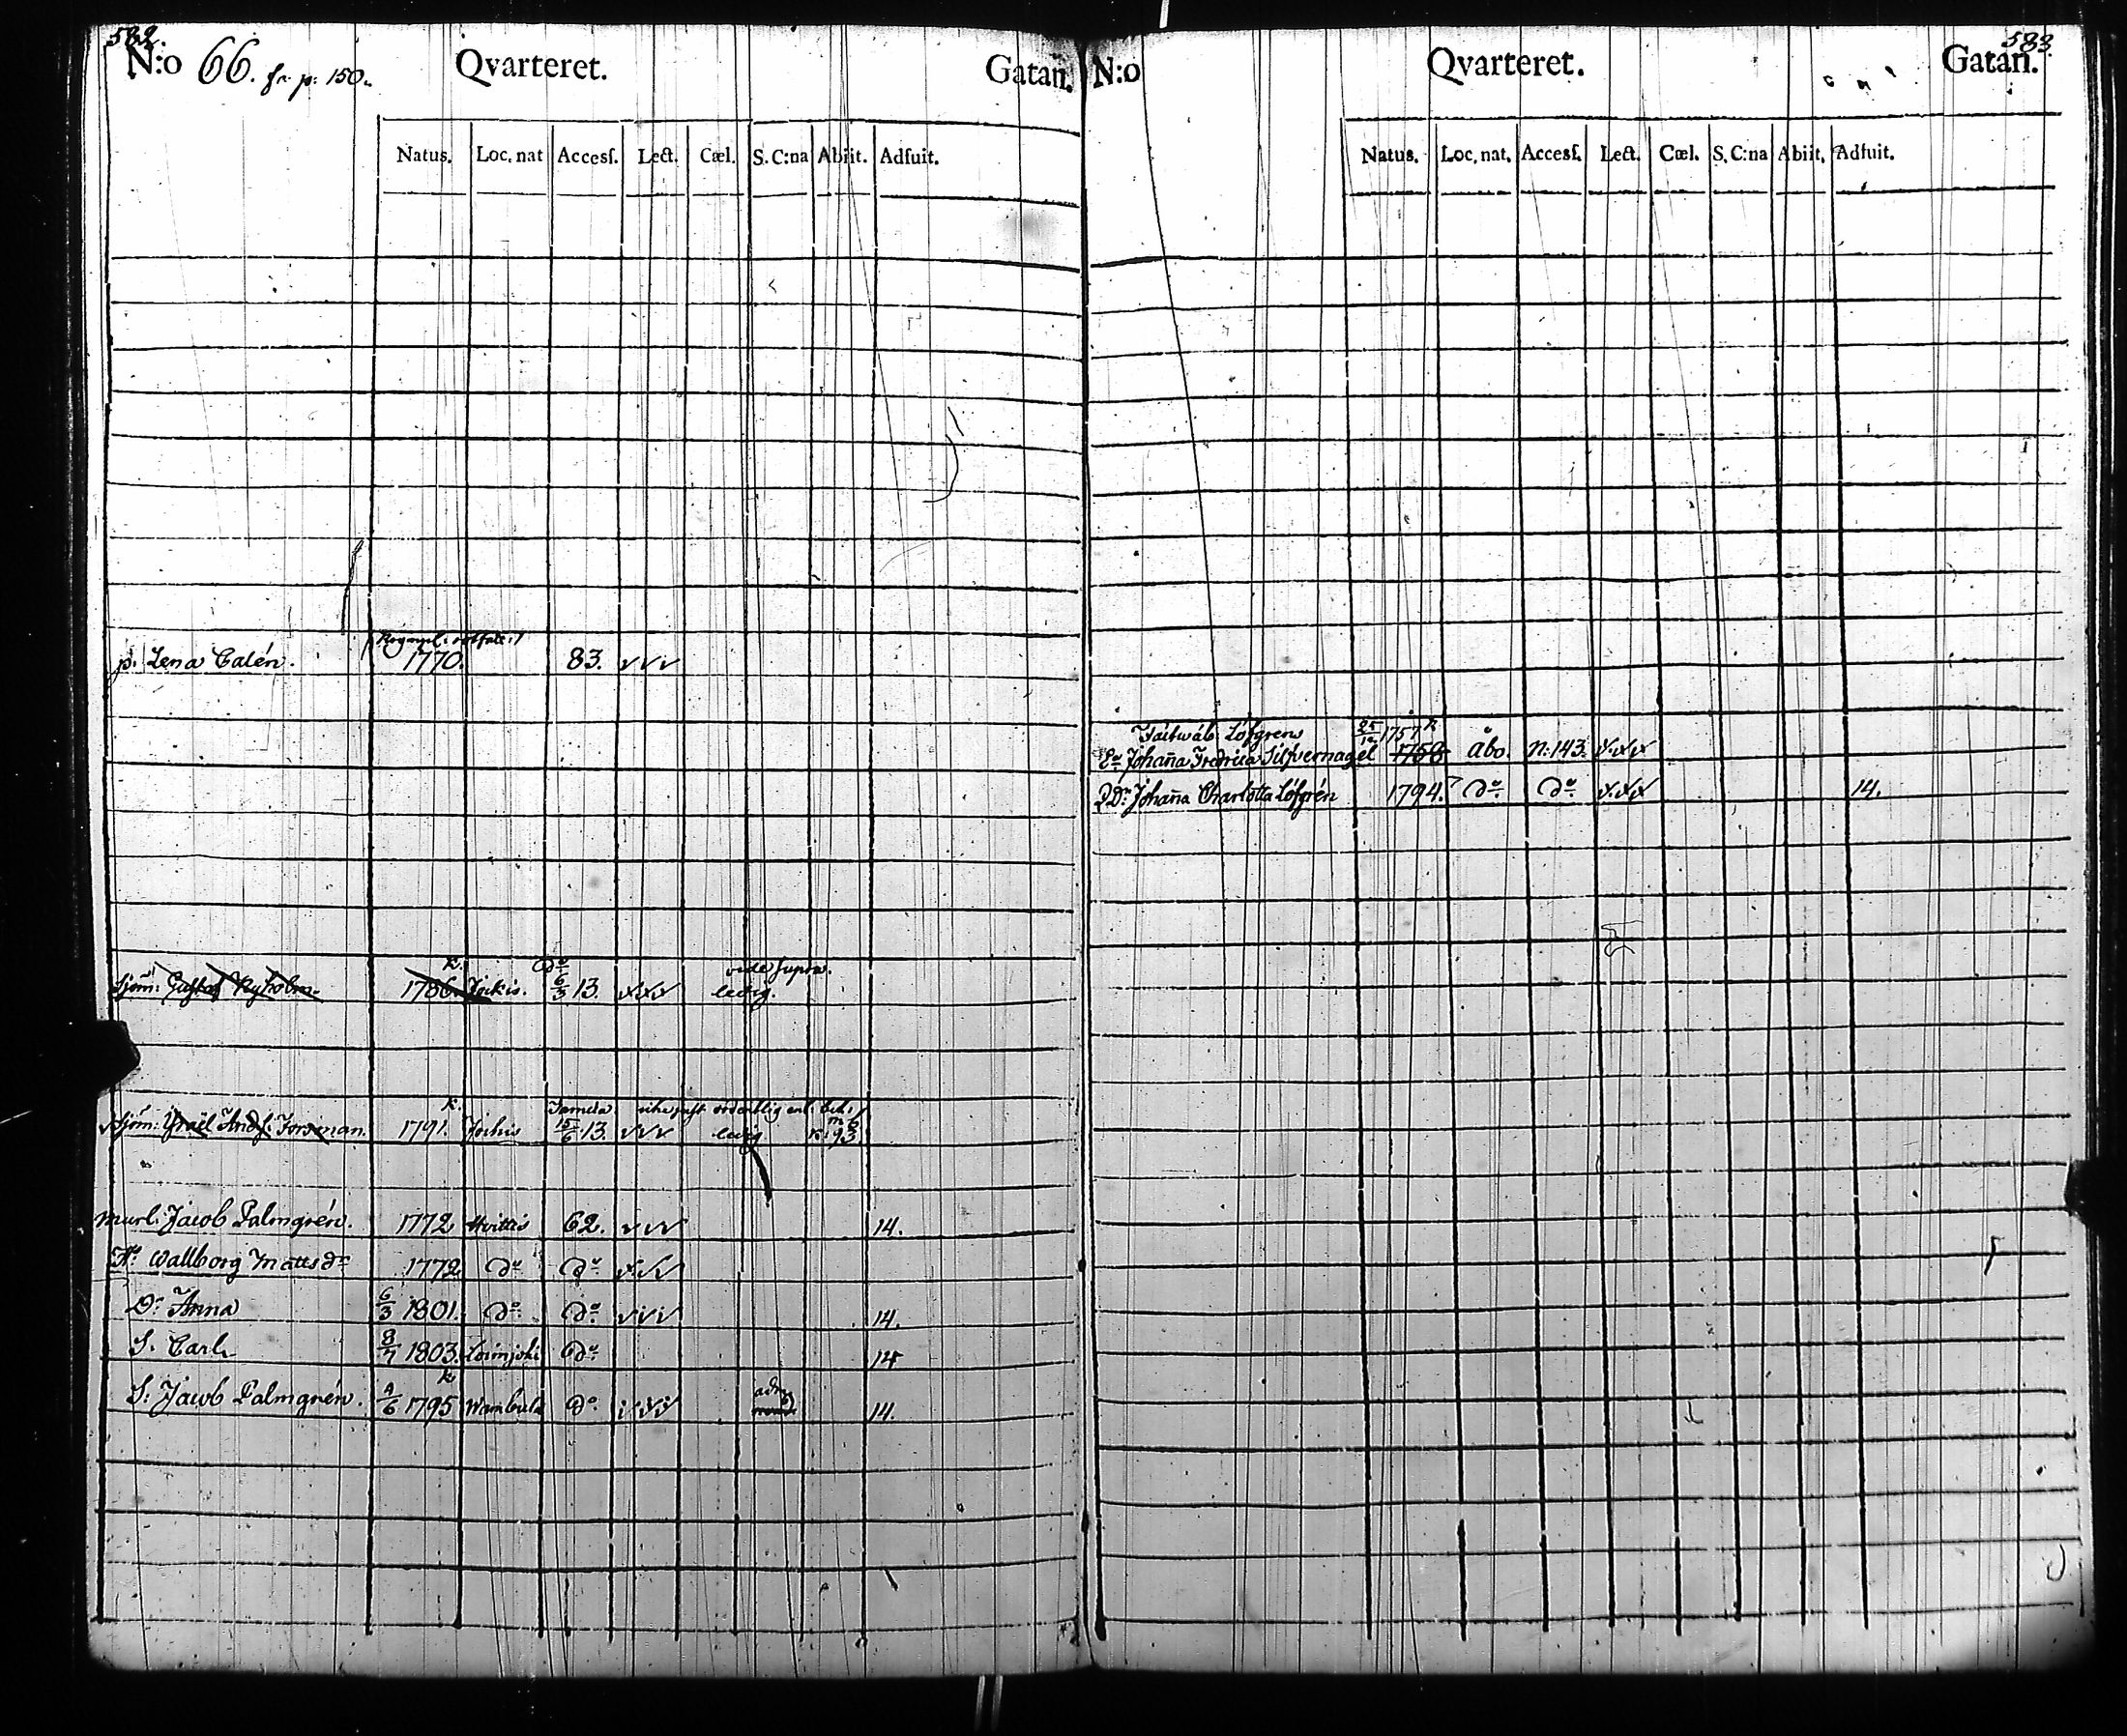 582.
N:o 66. fr. p: 150. Qvarteret. Gatan.
Natus. Loc. nat Accesſ. Lect. Cæl. S. C:na Abiit. Adfuit.
p. Lena Calén. 1770. 83.
vide supra.
Sjöm: Gustaf Nyholm 1786. Jockis. 6/3 13. ledig.
Sjöm: Israël And: Forsman. 1791. Jockis 15/6 13. ledig
Murl. Jacob Palmgrén. 1772 Hvittis 62. 14.
H: Wallborg Mattsdr 1772 Do Do
Dr Anna 6/3 1801. Do Do 14.
S. Carl 8/7 1803. Loimjoki Do 14
S: Jacob Palmgrén. 4/6 1795 Wambula Do 14.
583.
N:o Qvarteret. Gatan.
Natus. Loc. nat. Accesſ. Lect. Cœl. S. C:na Abiit. Adfuit.
Löfgrens 25/12 1757
Ea Johanna Fredrica Silfvernagel 1758 Åbo. N: 143
Dr Johanna Charlotta Löfgrén 1794. Do Do 14.